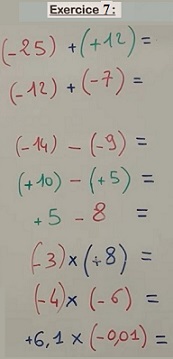 Exercice 7 :
(-25) + (+12) =
(-12) + (-7) =
(-14) - (-9) =
(+10) - (+5) =
+5 - 8 =
(-3) × (÷8) =
(-4) × (-6) =
+6,1 × (-0,01) =